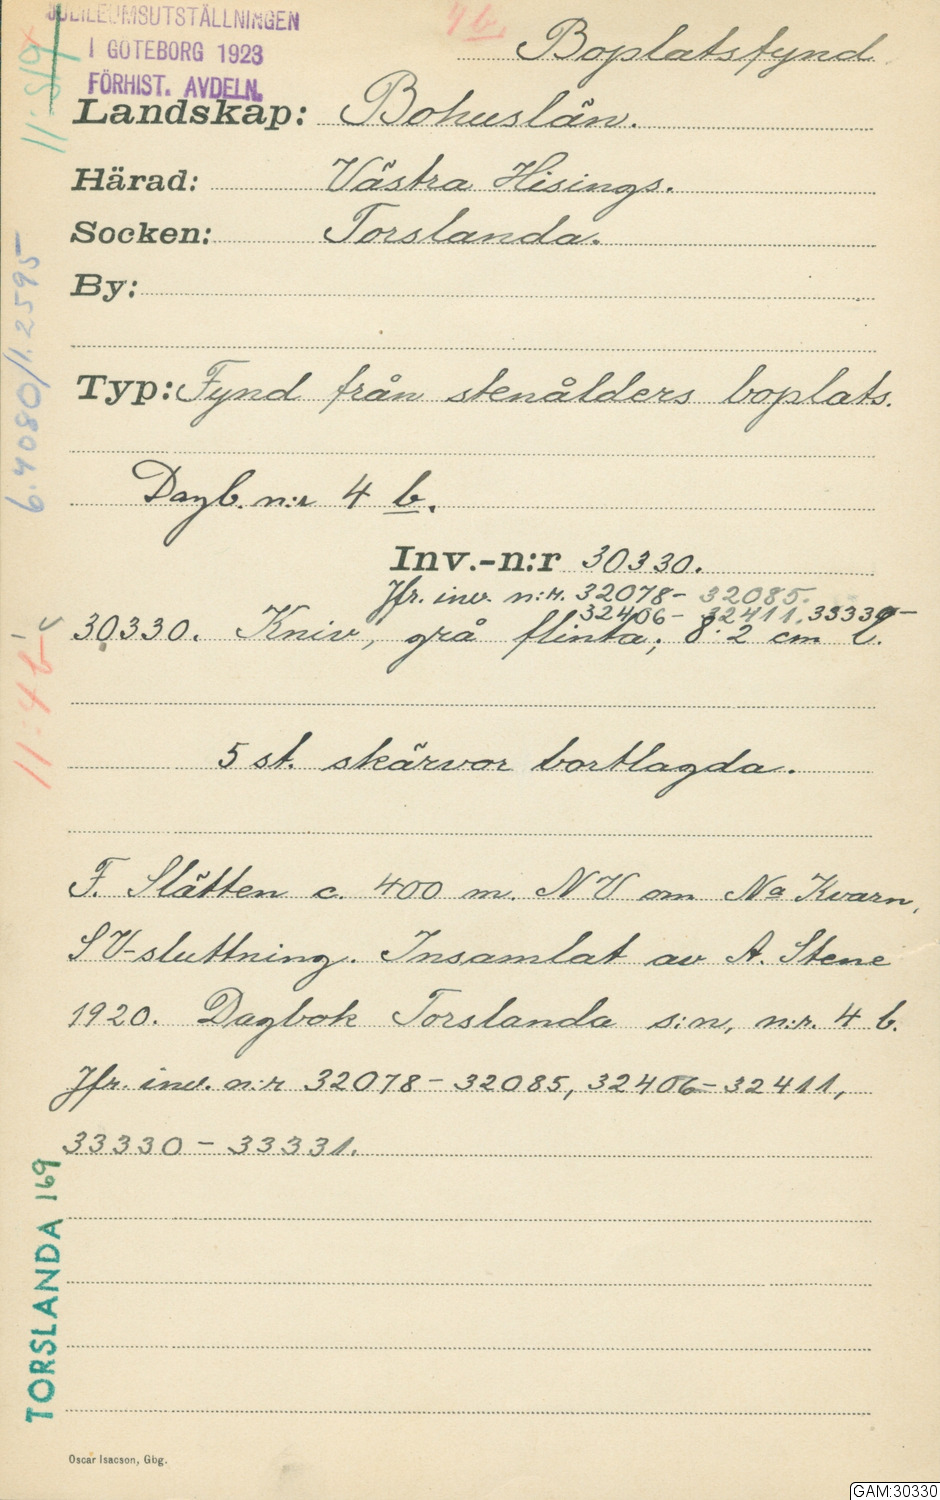 JUBILEUMSUTSTÄLLNINGEN
I GÖTEBORG 1923
FÖRHIST. AVDELN.
4 b.
Boplatsfynd
Landskap: Bohuslän.
Härad: Västra Hisings.
Socken: Torslanda.
By:
Typ: Fynd från stenålders boplats.
Dagb. n:r 4 b.
Inv.-n:r 30330.
Jfr. inv. n:r. 32078- 32085.
32406- 32411. 33330-
30330. Kniv, grå flinta; 8.2 cm l.
5 st. skärvor bortlagda.
F. Slätten c. 400 m. NV om Na Kvarn,
SV-sluttning. Insamlat av A. Stene
1920. Dagbok Torslanda s:n, n:r. 4 b.
Jfr. inv. n:r 32078-32085, 32406-32411,
33330-33331.
6.4080/1.2595
TORSLANDA 169
Oscar Isacson, Gbg.
GAM:30330